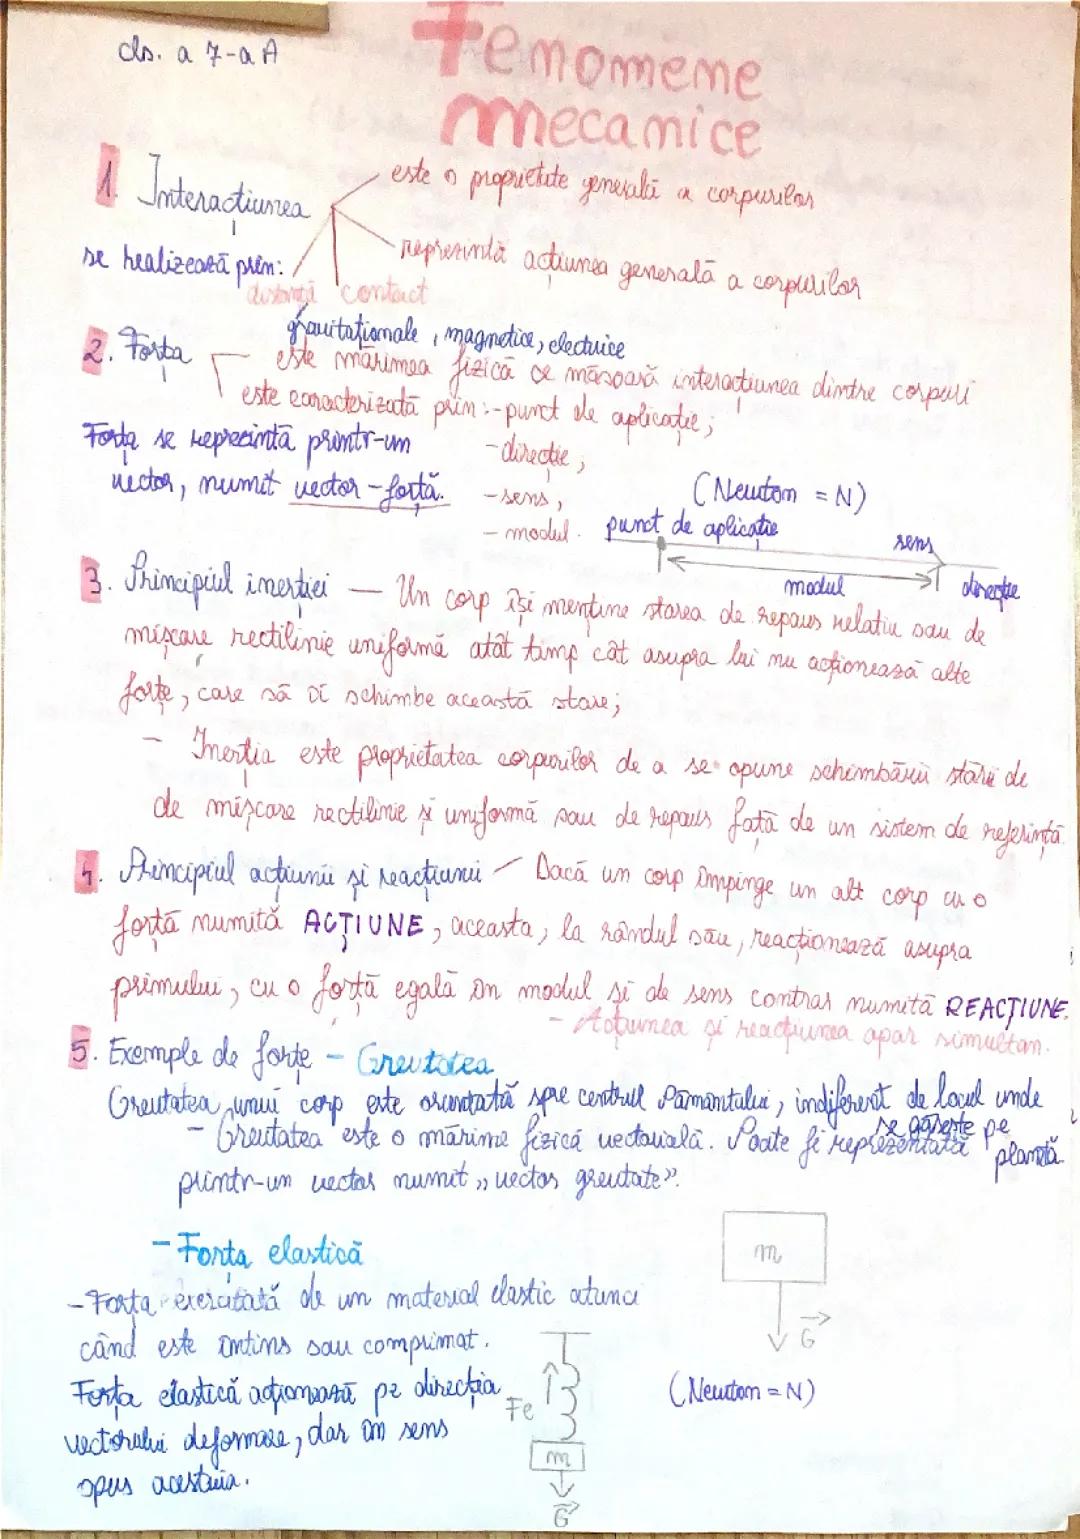 cls. a 7-a A
Fenomene
mecanice
1. Interacțiunea
este o proprietate generală a corpurilor
reprezintă acțiunea generală a corpurilor
se realizează prin:
distanță contact
gravitaționale, magnetice, electrice
2. Forța
este mărimea fizică ce măsoară interacțiunea dintre corpuri
este caracterizată prin: - punct de aplicație;
Forța se reprezintă printr-un
- direcție;
vector, numit vector-forță.
- sens,
(Newton = N)
- modul.
punct de aplicație
sens
modul
direcție
3. Principiul inerției — Un corp își menține starea de repaus relativ sau de
mișcare rectilinie uniformă atât timp cât asupra lui nu acționează alte
forțe, care să îi schimbe această stare;
- Inerția este proprietatea corpurilor de a se opune schimbării stării de
de mișcare rectilinie și uniformă sau de repaus față de un sistem de referință
4. Principiul acțiunii și reacțiunii - Dacă un corp împinge un alt corp cu o
forță numită ACȚIUNE, aceasta, la rândul său, reacționează asupra
primului, cu o forță egală în modul și de sens contrar numită REACȚIUNE.
- Acțiunea și reacțiunea apar simultan.
5. Exemple de forțe - Greutatea
Greutatea unui corp este orientată spre centrul Pământului, indiferent de locul unde
se găsește pe
planetă
- Greutatea este o mărime fizică vectorială. Poate fi reprezentată
printr-un vector numit „vector greutate”.
m
G
(Newton = N)
- Forța elastică
- Forța exercitată de un material elastic atunci
când este întins sau comprimat.
Forța elastică acționează pe direcția
vectorului deformare, dar în sens
opus acestuia.
Fe
m
G